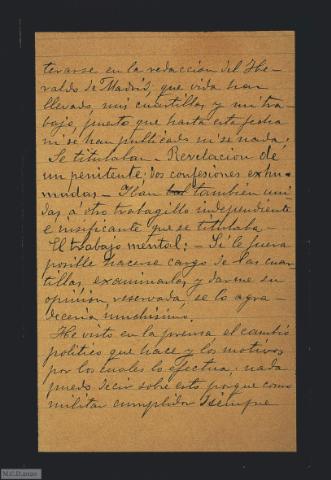 terarse en la redacción del He-
raldo de Madrid, que vida han
llevado, mis cuartillas y mi tra-
bajo, puesto que hasta esta fecha
ni se han publicado ni se nada:
Se titulaban - Revelación de
un penitente; dos confesiones exhu-
madas - Iban también uni-
das á otro trabagillo independiente
é insificante que se titulaba -
El trabajo mental: - Si le fuera
posible hacerse cargo de las cuar
tillas, examinarlas y darme su
opinión, reservada, se lo agra-
decería muchísimo.
He visto en la prensa el cambio
político que hace y los motivos
por los cuales lo efectua: nada
puedo decir sobre esto porque como
militar cumplidor siempre
M.C.D. 2020